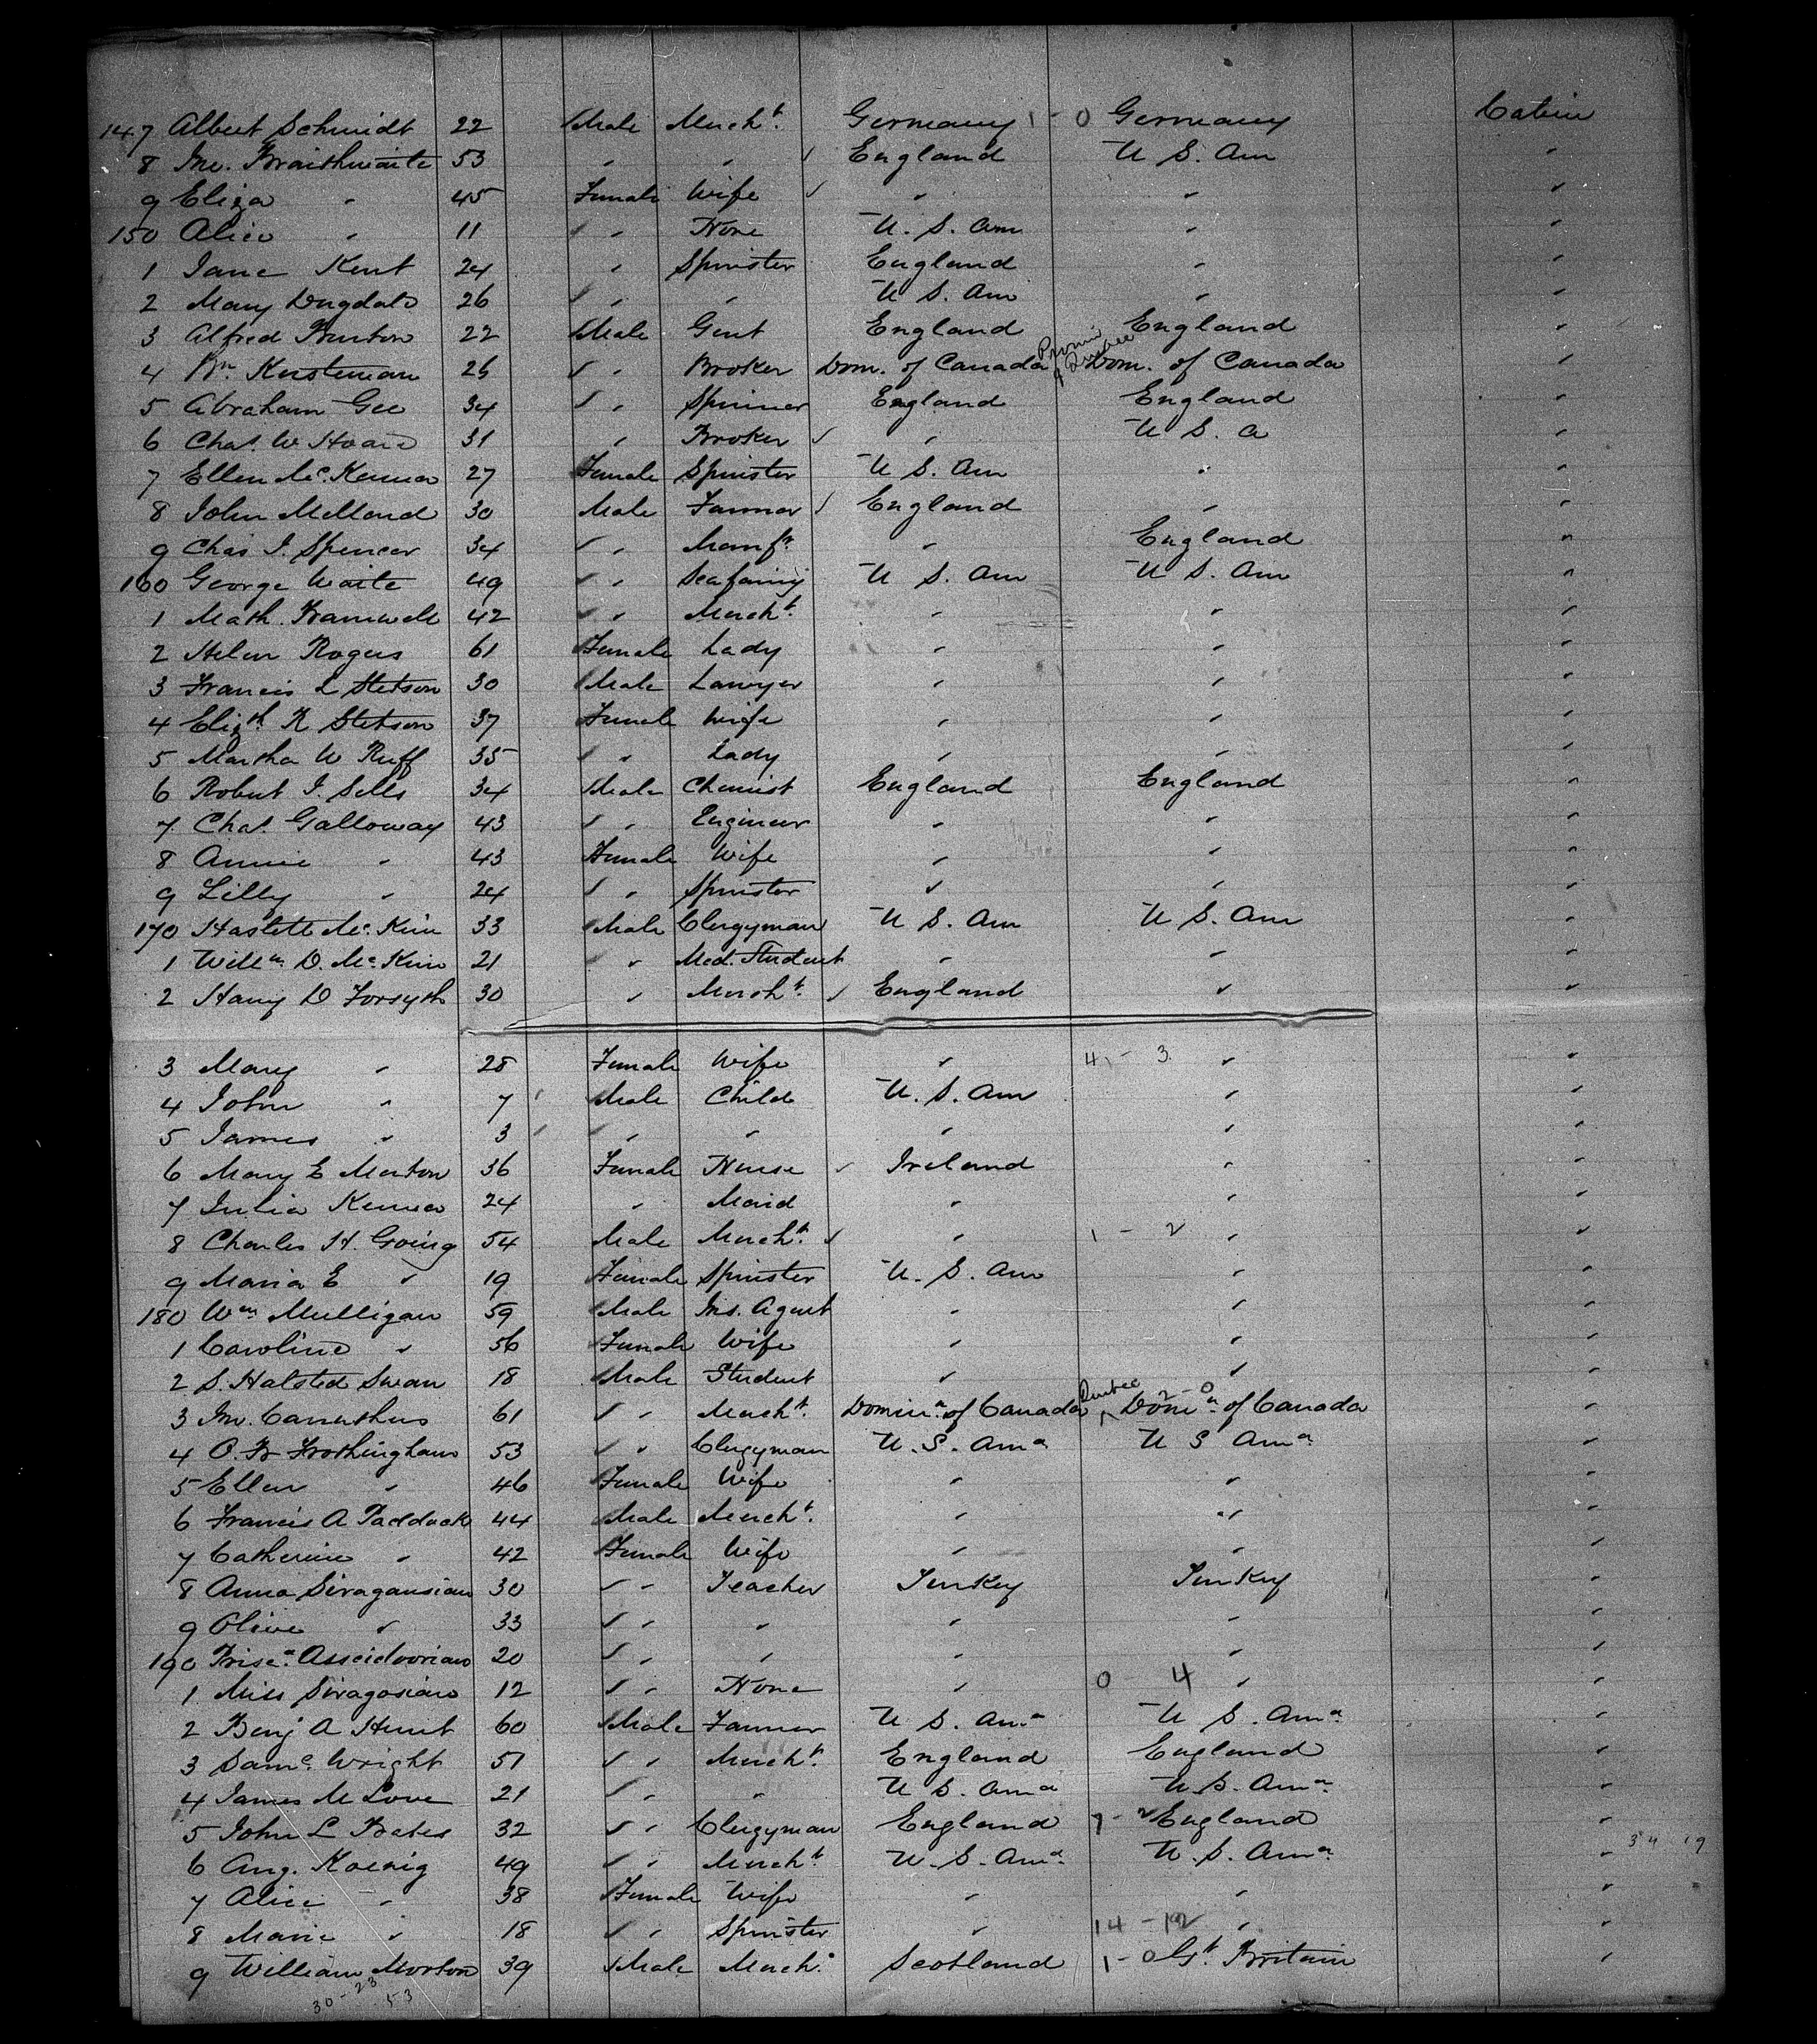 147 Albert Schmidt 22 Male Mercht. Germany 1 - 0 Germany Cabin
8 Jno. Braithwaite 53 " " England U S. Am "
9 Eliza " 45 Female Wife " " "
150 Alice " 11 " " None U. S. Am " "
1 Jane Kent 24 " Spinster England " "
2 Mary Dugdale 26 " " " U S. Am " "
3 Alfred Burton 22 Male Gent England England "
4 Kersteman 26 " " Broker Dom. of Canada Dom. of Canada "
5 Abraham Gee 34 " " Spinner England England "
6 Chas. W Hoare 31 " Broker " U S. a "
7 Ellen McKenna 27 Female Spinster U S. Am " "
8 John Melland 30 Male Farmer England " "
9 Chas J. Spencer 34 " " Manfr. " England "
160 George Waite 49 " " Seafaring U S. Am U S. Am "
1 Math. Bramwell 42 " " Mercht. " " "
2 Helen Rogers 61 Female Lady " " "
3 Francis L Stetson 30 Male Lawyer " " "
4 Elizth R Stetson 37 Female Wife " " "
5 Martha W Ruff 35 " " Lady " " "
6 Robert J. Sells 34 Male Chemist England England "
7 Chas. Galloway 43 " " Engineer " " "
8 Annie " 43 Female Wife " " "
9 Lilly " 24 " " Spinster " " "
170 Haslett McKim 33 Male Clergyman U S. Am U S. Am "
1 Willm D. McKim 21 " " Med. Student " " "
2 Harry D Forsyth 30 " Mercht. England " "
3 Mary " 28 Female Wife " 4 - 3 " "
4 John " 7 Male Child U. S. Am " "
5 James " 3 " " " " "
6 Mary E Morton 36 Female Nurse Ireland " "
7 Julia Kenna 24 " Maid " " "
8 Charles H. Going 54 Male Mercht. " 1 - 2 " "
9 Maria E " 19 Female Spinster U. S. Am " "
180 Wm Mulligan 59 Male Ins. Agent " " "
1 Caroline " 56 Female Wife " " "
2 S. Halsted Swan 18 Male Student " " "
3 Jno. Carruthers 61 " " Mercht. Domin. of Canada Quebec 2 - 0 Domn of Canada "
4 O. B Frothingham 53 " " Clergyman U. S. Ama U S Ama "
5 Ellen " 46 Female Wife " " "
6 Francis A Paddock 44 Male Mercht. " " "
7 Catherine " 42 Female Wife " " "
8 Anna Siragansian 30 " " Teacher Turkey Turkey "
9 Olive " 33 " " " " " "
190 20 " " " " " "
1 Miss Siragosian 12 " " None " 0 4 " "
2 Benj A Hunt 60 Male Farmer U S. Ama U S. Ama "
3 Saml. Wright 51 " " Mercht. England England "
4 James M Love 21 " " " U S. Ama U S. Ama "
5 John L Bates 32 " " Clergyman England 7 - 2 England "
6 Aug. Koenig 49 " " Mercht. U. S. Ama U. S. Ama " 34 19
7 Alice " 38 Female Wife " " "
8 Marie " 18 " " Spinster " 14 - 12 " "
9 William Morton 39 Male Mercht. Scotland 1 - 0 Gt. Britain "
30 - 23
53